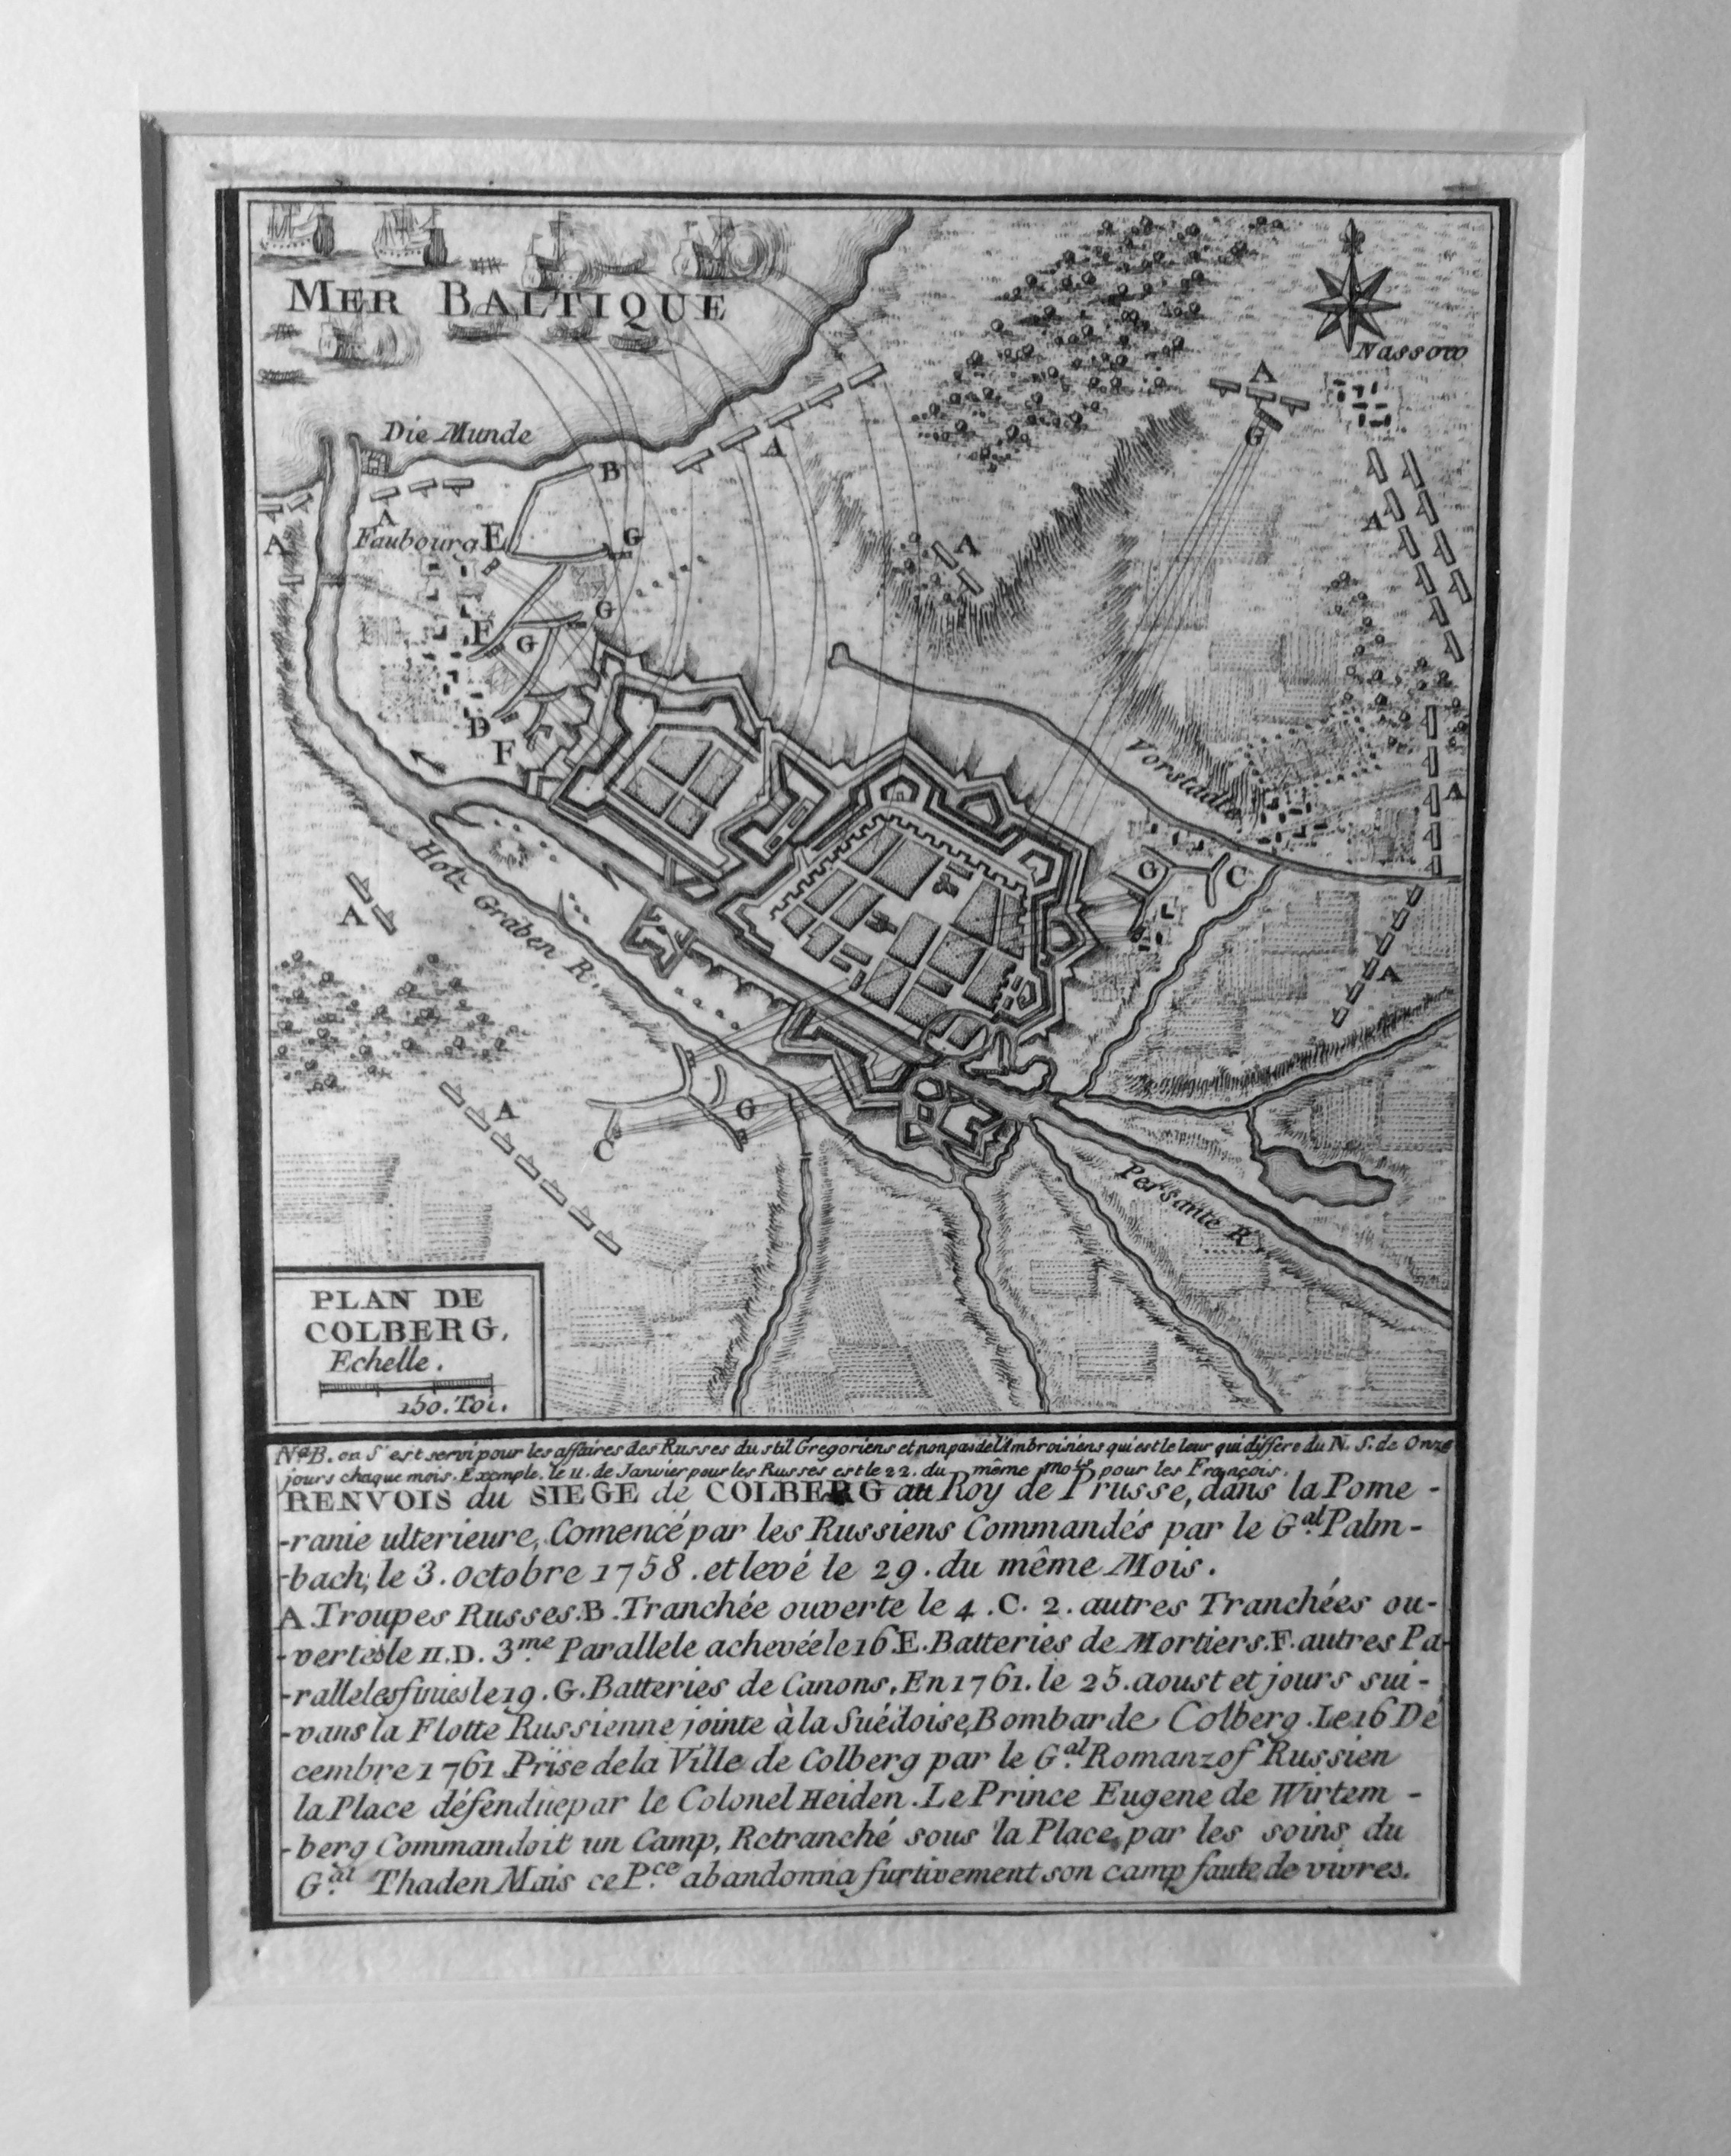 MER BALTIQUE
Nassow
A
G
Die Munde
B
A
A
A
Faubourg
E
G
A
A
G
F
G
D
F
Vorstadte
A
G
C
Hotz Graben R.
A
A
A
G
C
Persante R.
PLAN DE
COLBERG,
Echelle.
150. Toi.
Nᵃ B. on S'est servi pour les affaires des Russes du stil Gregoriens et non pas de l'Ambroisiens qui est le leur qui differe du N. S. de Onze
jours chaque mois. Exemple. le 11. de Janvier pour les Russes est le 22. du même mois pour les François.
RENVOIS du SIEGE de COLBERG au Roy de Prusse, dans la Pome -
-ranie ulterieure, Comencé par les Russiens Commandés par le Gᵃˡ. Palm-
-bach, le 3. octobre 1758. et levé le 29. du même Mois.
A. Troupes Russes. B. Tranchée ouverte le 4. C. 2. autres Tranchées ou-
-vertes le II. D. 3ᵐᵉ. Parallele achevée le 16 E. Batteries de Mortiers. F. autres Pa-
-ralleles finies le 19. G. Batteries de Canons. En 1761. le 25. aoust et jours sui-
-vans la Flotte Russienne jointe à la Suédoise, Bombarde Colberg. Le 16 Dé
cembre 1761 Prise de la Ville de Colberg par le Gᵃˡ. Romanzof Russien
la Place défendue par le Colonel Heiden. Le Prince Eugene de Wirtem -
-berg Commandoit un Camp, Retranché sous la Place, par les soins du
Gᵃˡ. Thaden Mais ce Pᶜᵉ. abandonna furtivement son camp faute de vivres.